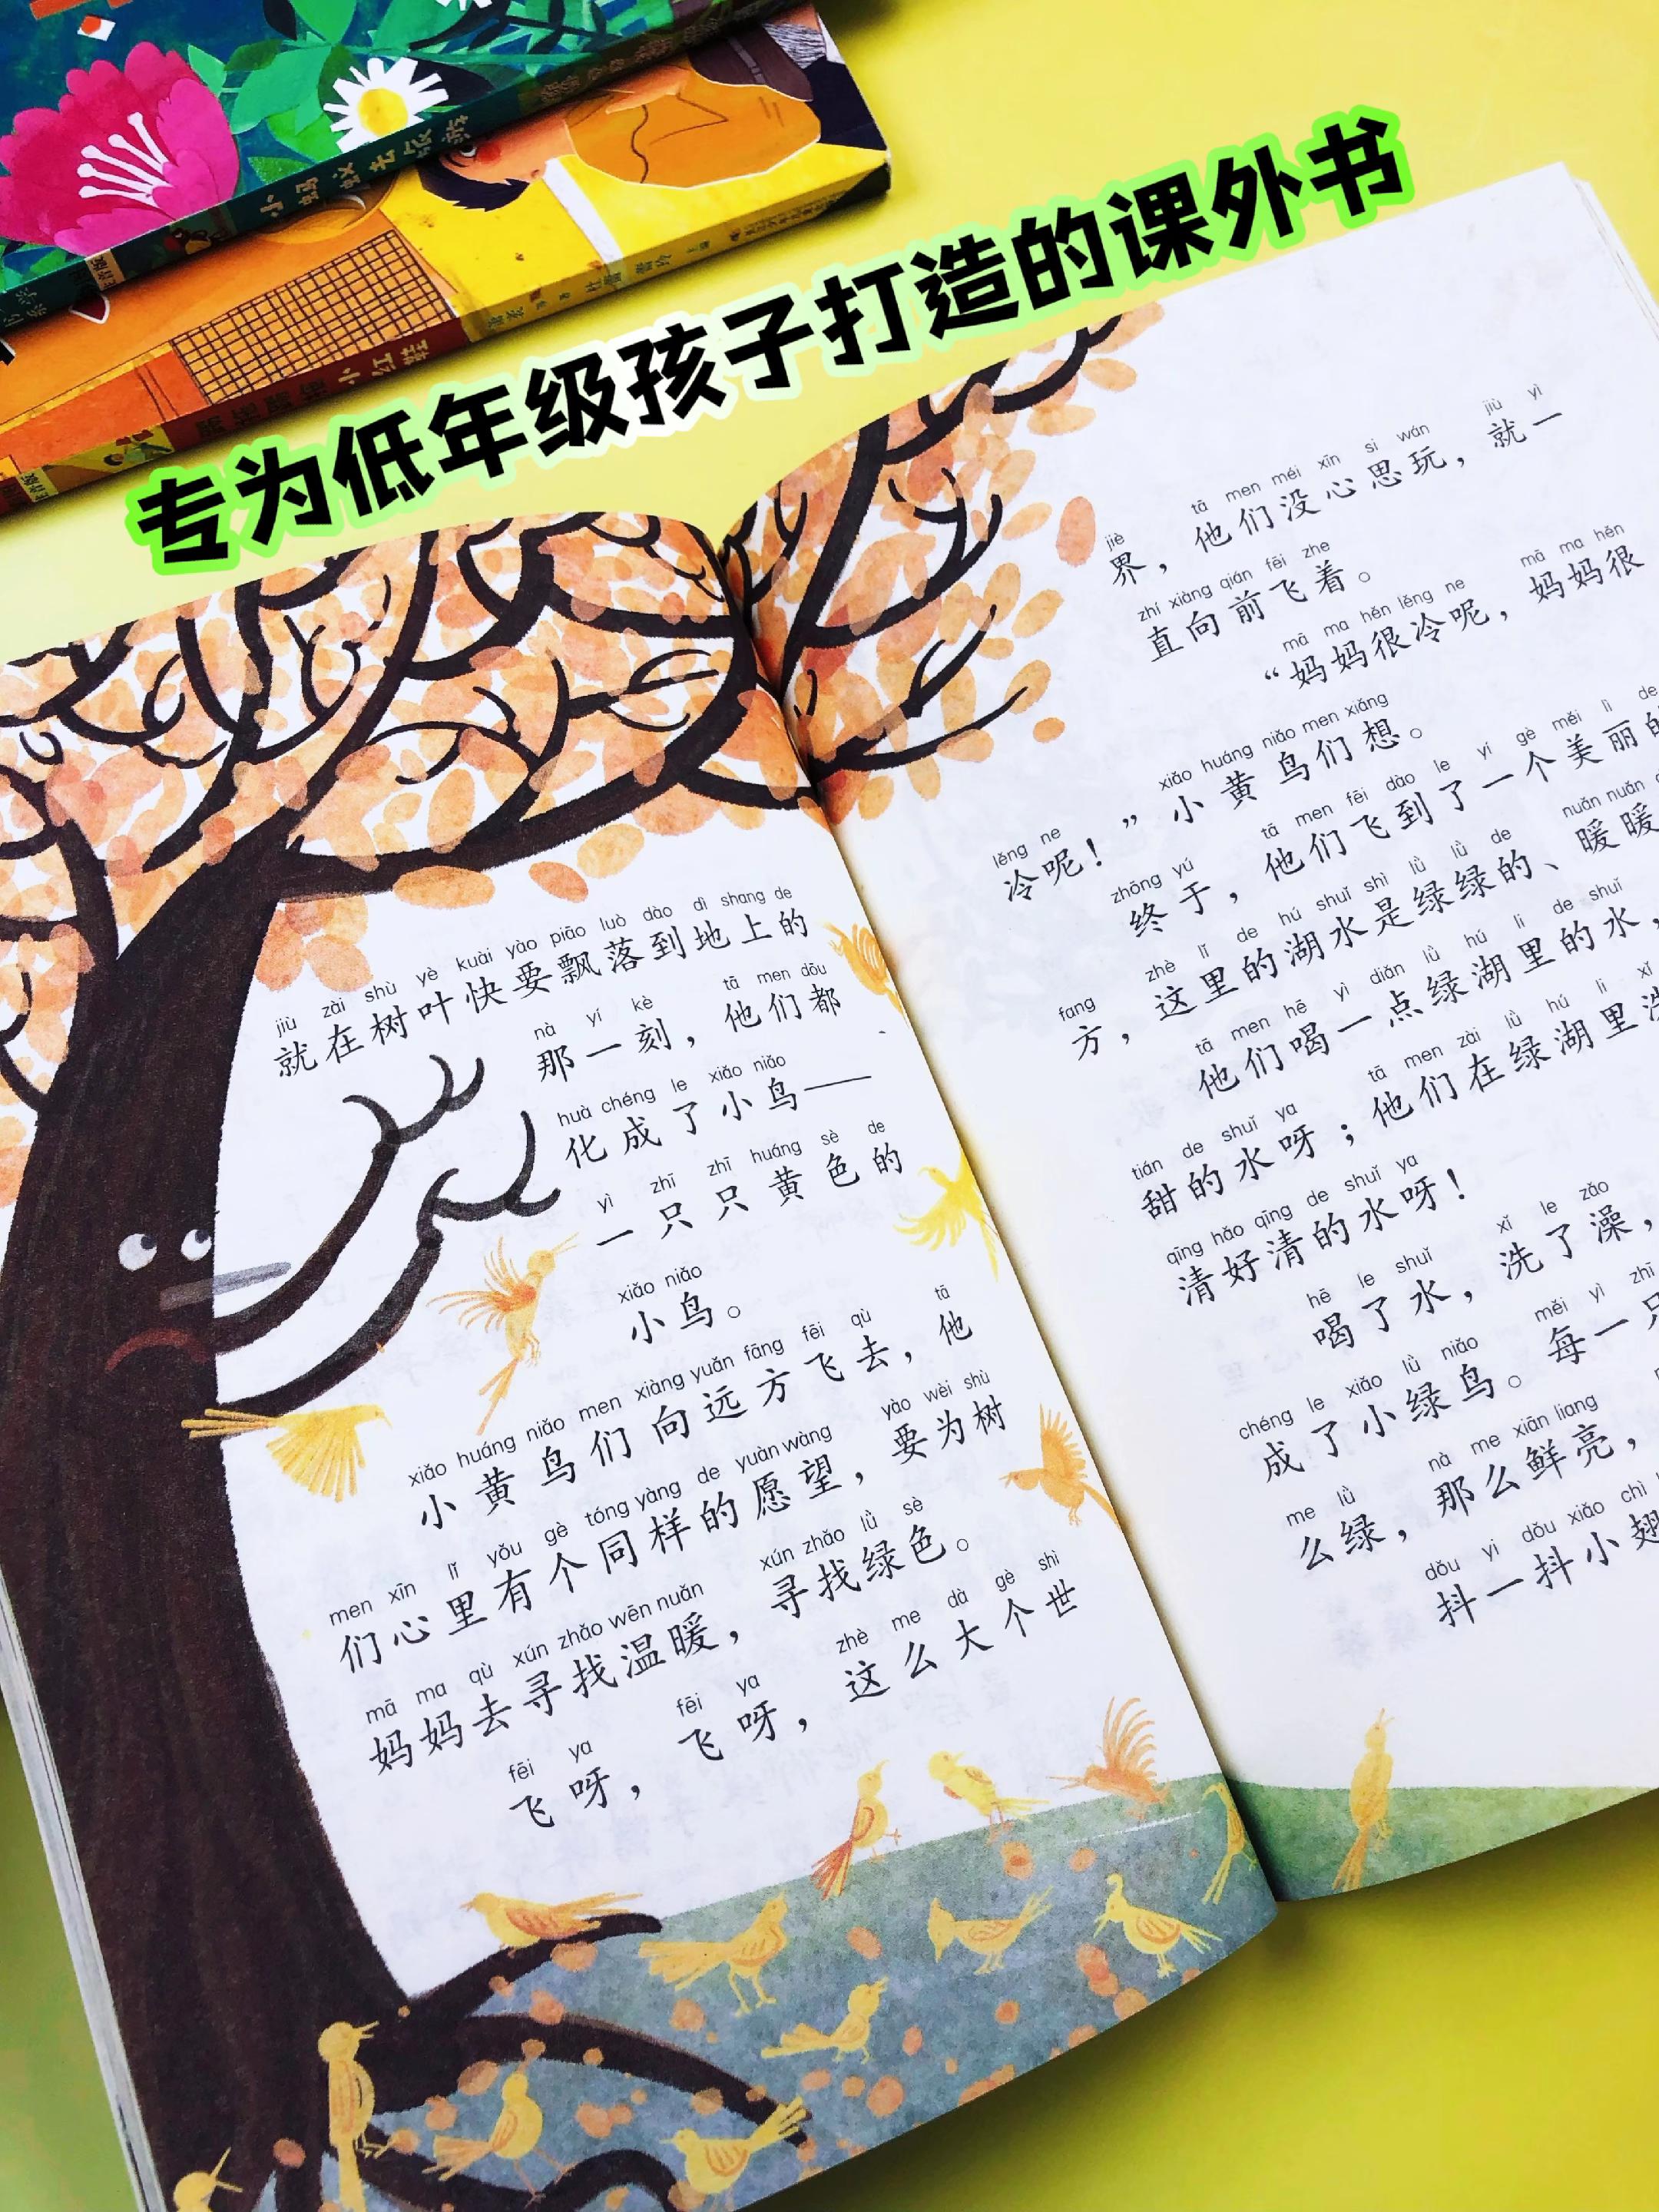 小蚂蚁去旅游
小红鞋
专为低年级孩子打造的课外书
jiù zài shù yè kuài yào piāo luò dào dì shang de
就在树叶快要飘落到地上的
nà yí kè tā men dōu
那一刻，他们都
huà chéng le xiǎo niǎo
化成了小鸟——
yì zhī zhī huáng sè de
一只只黄色的
xiǎo niǎo
小鸟。
xiǎo huáng niǎo men xiàng yuǎn fāng fēi qù tā
小黄鸟们向远方飞去，他
men xīn lǐ yǒu gè tóng yàng de yuàn wàng yào wèi shù
们心里有个同样的愿望，要为树
mā ma qù xún zhǎo wēn nuǎn xún zhǎo lǜ sè
妈妈去寻找温暖，寻找绿色。
fēi ya fēi ya zhè me dà gè shì
飞呀，飞呀，这么大个世
jiè tā men méi xīn si wán jiù yì
界，他们没心思玩，就一
zhí xiàng qián fēi zhe
直向前飞着。
mā ma hěn lěng ne mā ma hěn
“妈妈很冷呢，妈妈很
lěng ne xiǎo huáng niǎo men xiǎng
冷呢！”小黄鸟们想。
zhōng yú tā men fēi dào le yí gè měi lì de
终于，他们飞到了一个美丽的
fang zhè lǐ de hú shuǐ shì lǜ lǜ de nuǎn nuǎn
方，这里的湖水是绿绿的、暖暖
tā men hē yì diǎn lǜ hú li de shuǐ
他们喝一点绿湖里的水，
tián de shuǐ ya tā men zài lǜ hú li xǐ
甜的水呀；他们在绿湖里洗
qīng hǎo qīng de shuǐ ya
清好清的水呀！
hē le shuǐ xǐ le zǎo
喝了水，洗了澡，
chéng le xiǎo lǜ niǎo měi yì zhī
成了小绿鸟。每一只
me lǜ nà me xiān liang
么绿，那么鲜亮，
dǒu yi dǒu xiǎo chì
抖一抖小翅